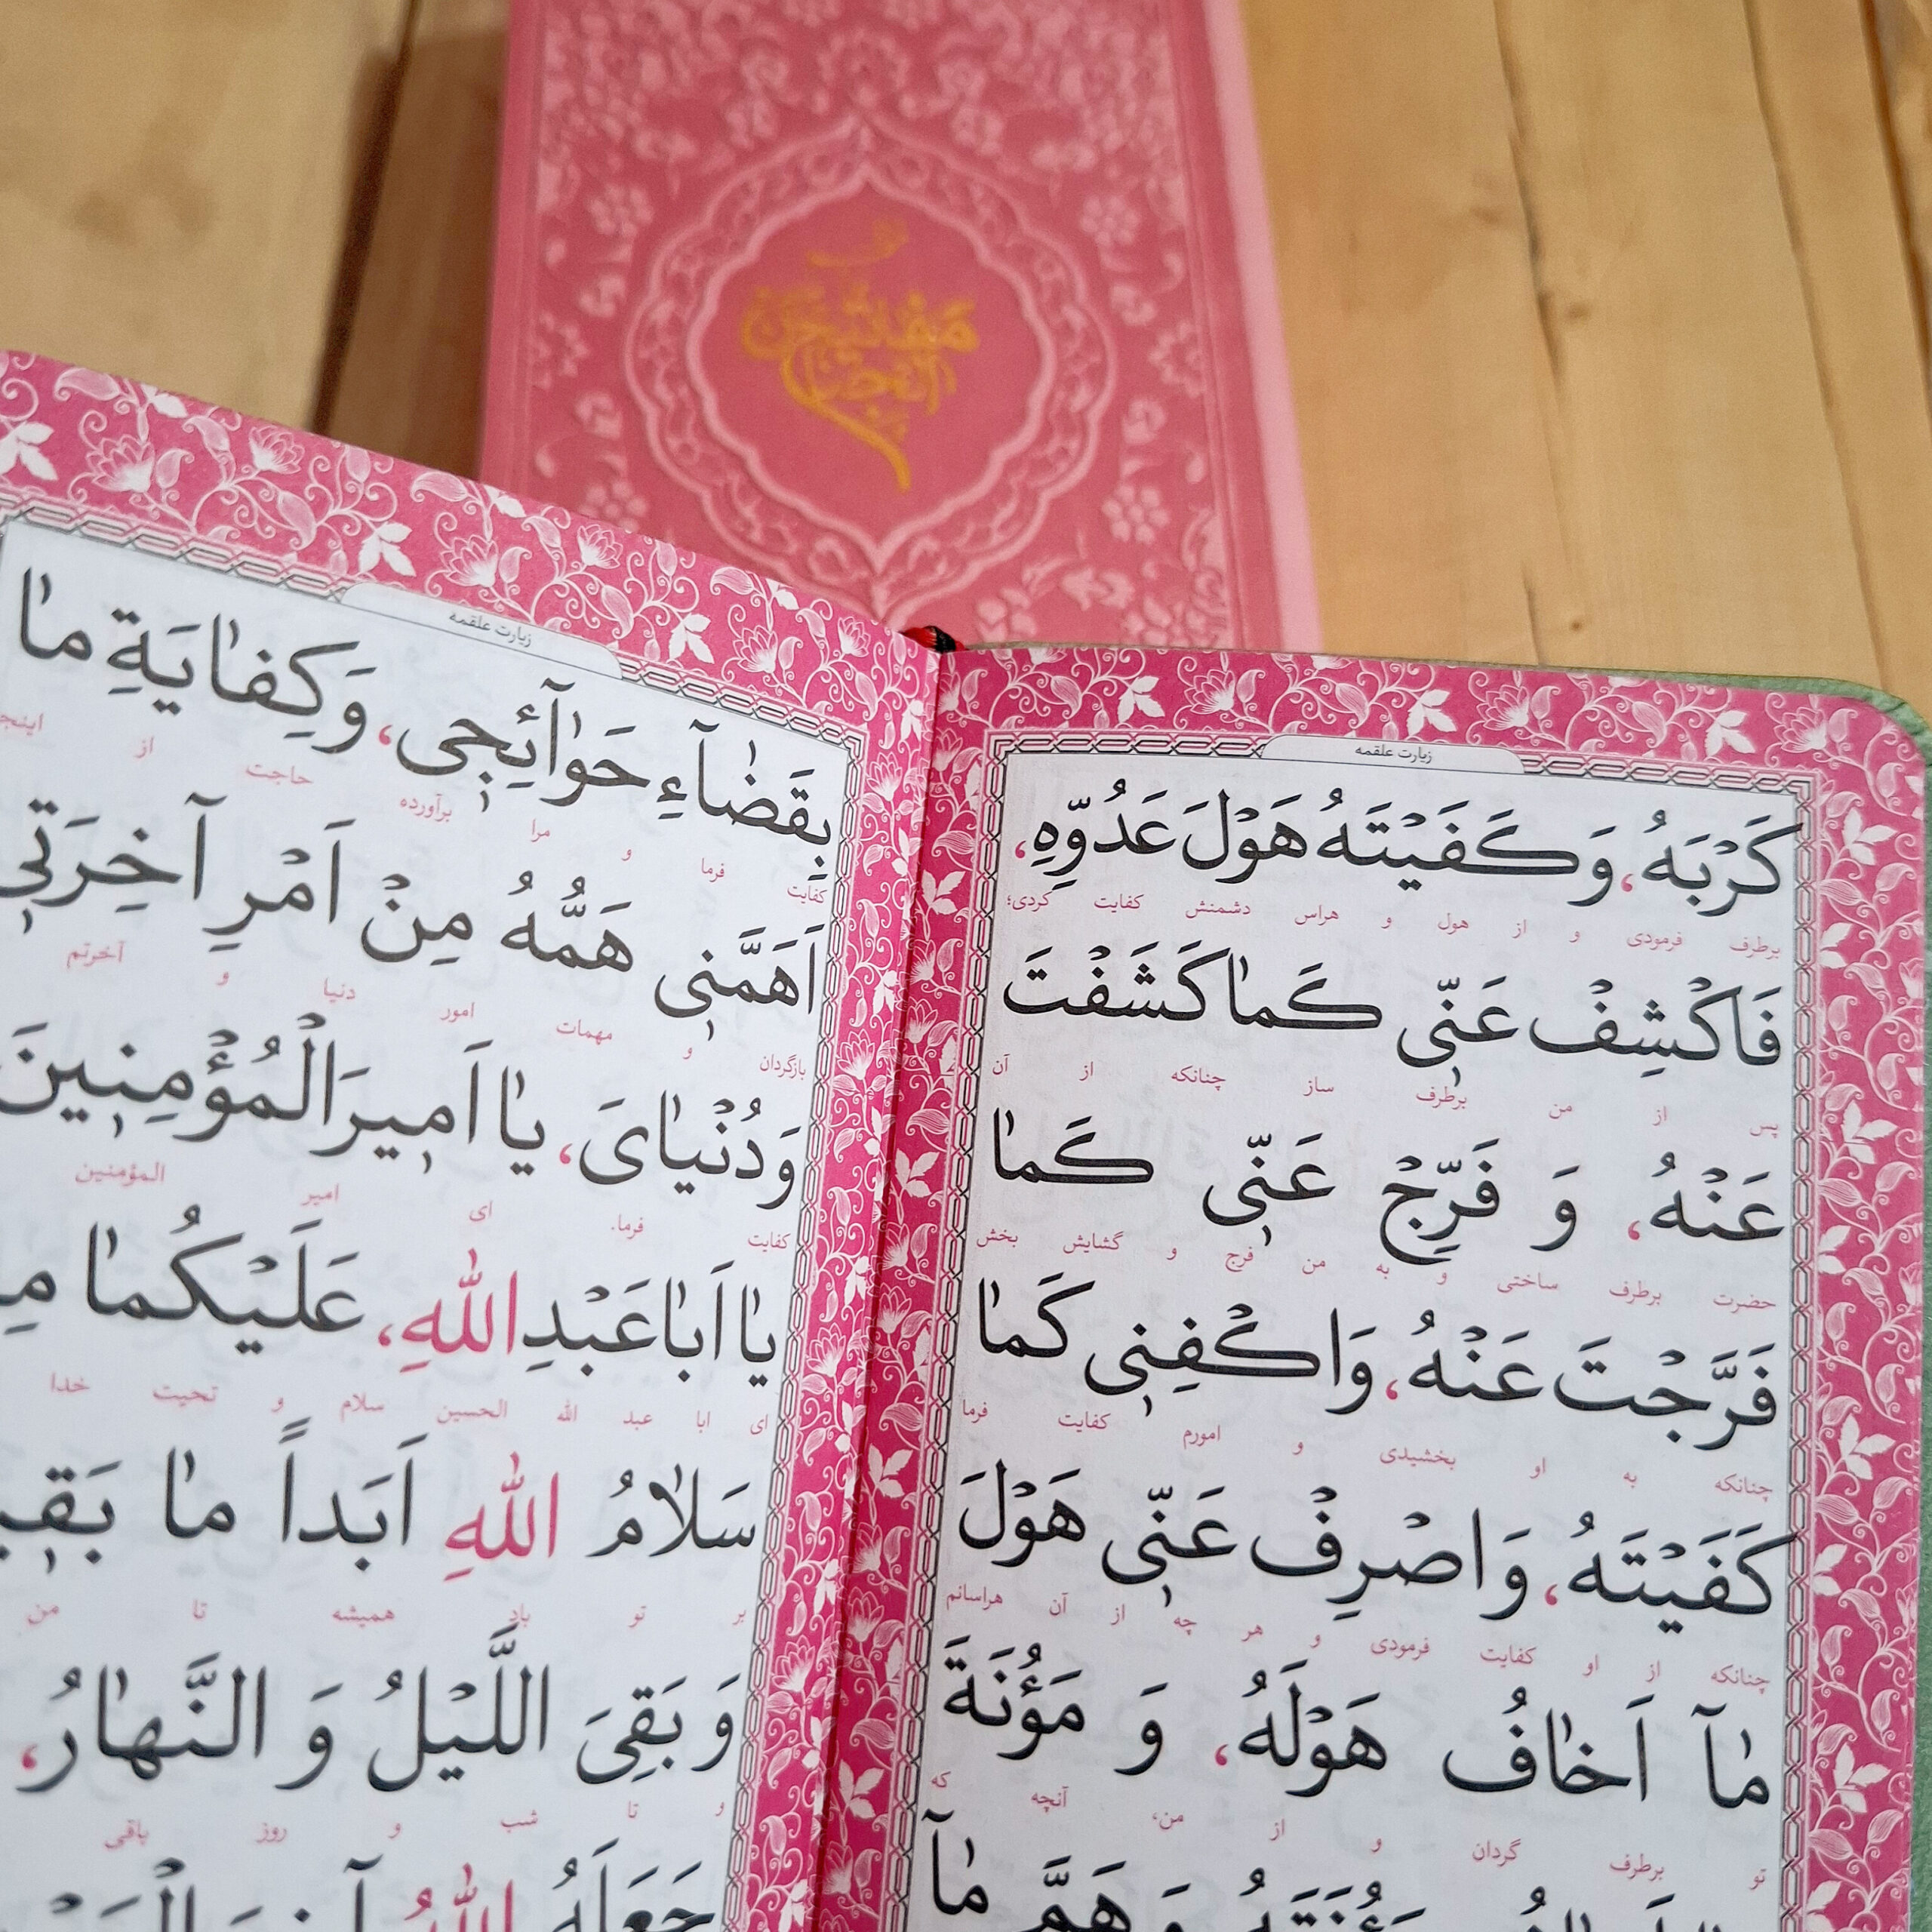 مفاتیح الجنان
زیارت علقمه
كَرْبَهُ، وَ كَفَيْتَهُ هَوْلَ عَدُوِّهِ،
برطرف فرمودی و از هول و هراس دشمنش کفایت کردی؛
فَاكْشِفْ عَنّى كَمٰا كَشَفْتَ
پس از من برطرف ساز چنانکه از آن
عَنْهُ، وَ فَرِّجْ عَنّى كَمٰا
حضرت برطرف ساختی و به من فرج و گشایش بخش
فَرَّجْتَ عَنْهُ، وَاكْفِنى كَمٰا
چنانکه به او بخشیدی و امورم کفایت فرما
كَفَيْتَهُ، وَاصْرِفْ عَنّى هَوْلَ
چنانکه از او کفایت فرمودی و هر چه از آن هراسانم
مٰآ اَخٰافُ هَوْلَهُ، وَ مَؤُنَةَ
تو برطرف گردان و از من، آنچه که
مٰآ
زیارت علقمه
بِقَضٰآءِ حَوٰآئِجى، وَكِفٰايَةِ مٰا
کفایت فرما و مرا برآورده حاجت از
اَهَمَّنى هَمُّهُ مِنْ اَمْرِ آخِرَتى
بازگردان و مهمات امور دنیا و آخرتم
وَدُنْيٰاىَ، يٰا اَميرَالْمُؤْمِنينَ
کفایت فرما. ای امیر المؤمنین
يٰا اَبٰاعَبْدِاللّٰهِ، عَلَيْكُمٰا
ای ابا عبد الله الحسین سلام و تحیت خدا
سَلاٰمُ اللّٰهِ اَبَداً مٰا
بر تو باد همیشه تا من
وَ بَقِىَ اللَّيْلُ وَ النَّهٰارُ،
و تا شب و روز باقی
جَعَلَهُ اللّٰهُ